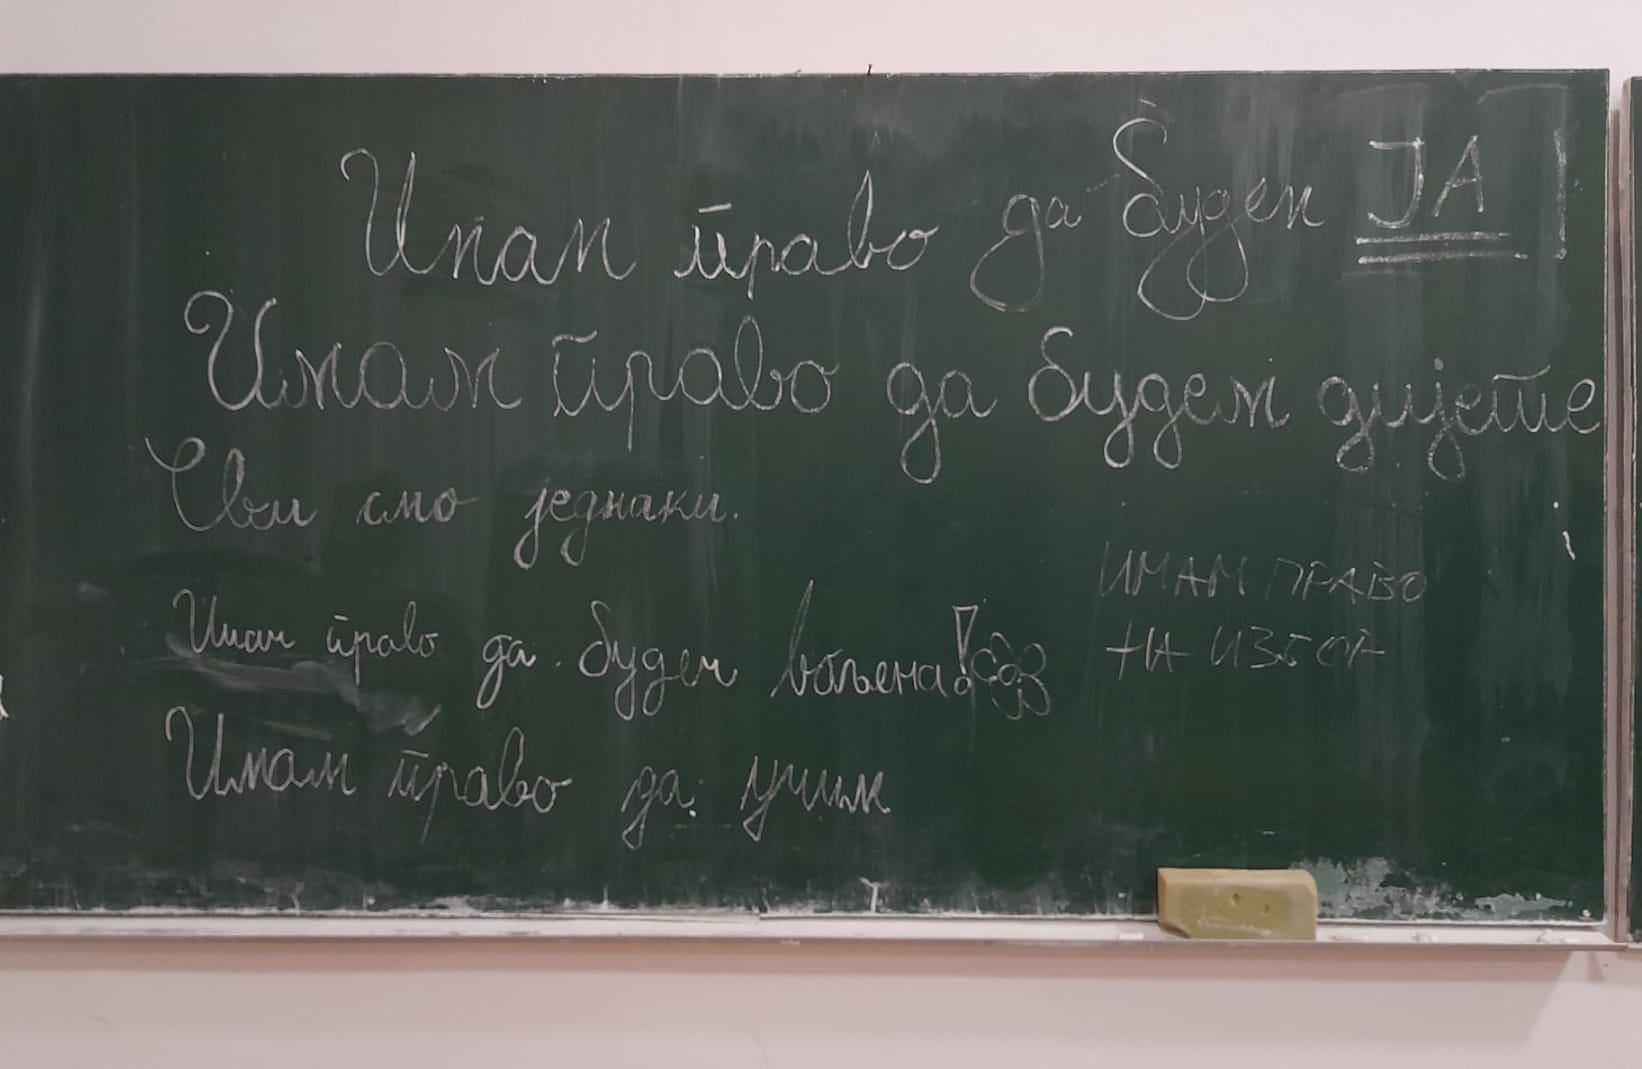 Имам право да будем ЈА!
Имам право да будем дијете
Сви смо једнаки.
Имам право да будем вољена!
ИМАМ ПРАВО
НА ИЗБОР
Имам право да учим